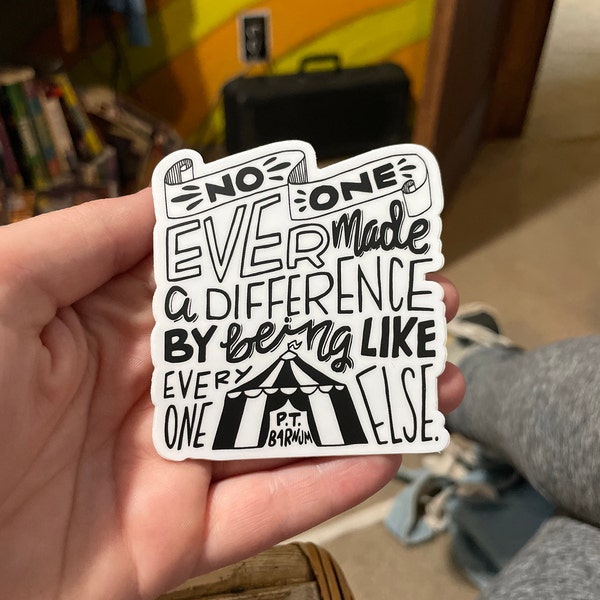 NO ONE
EVER made
a DIFFERENCE
BY being LIKE
EVERY
ONE ELSE.
P.T.
BARNUM